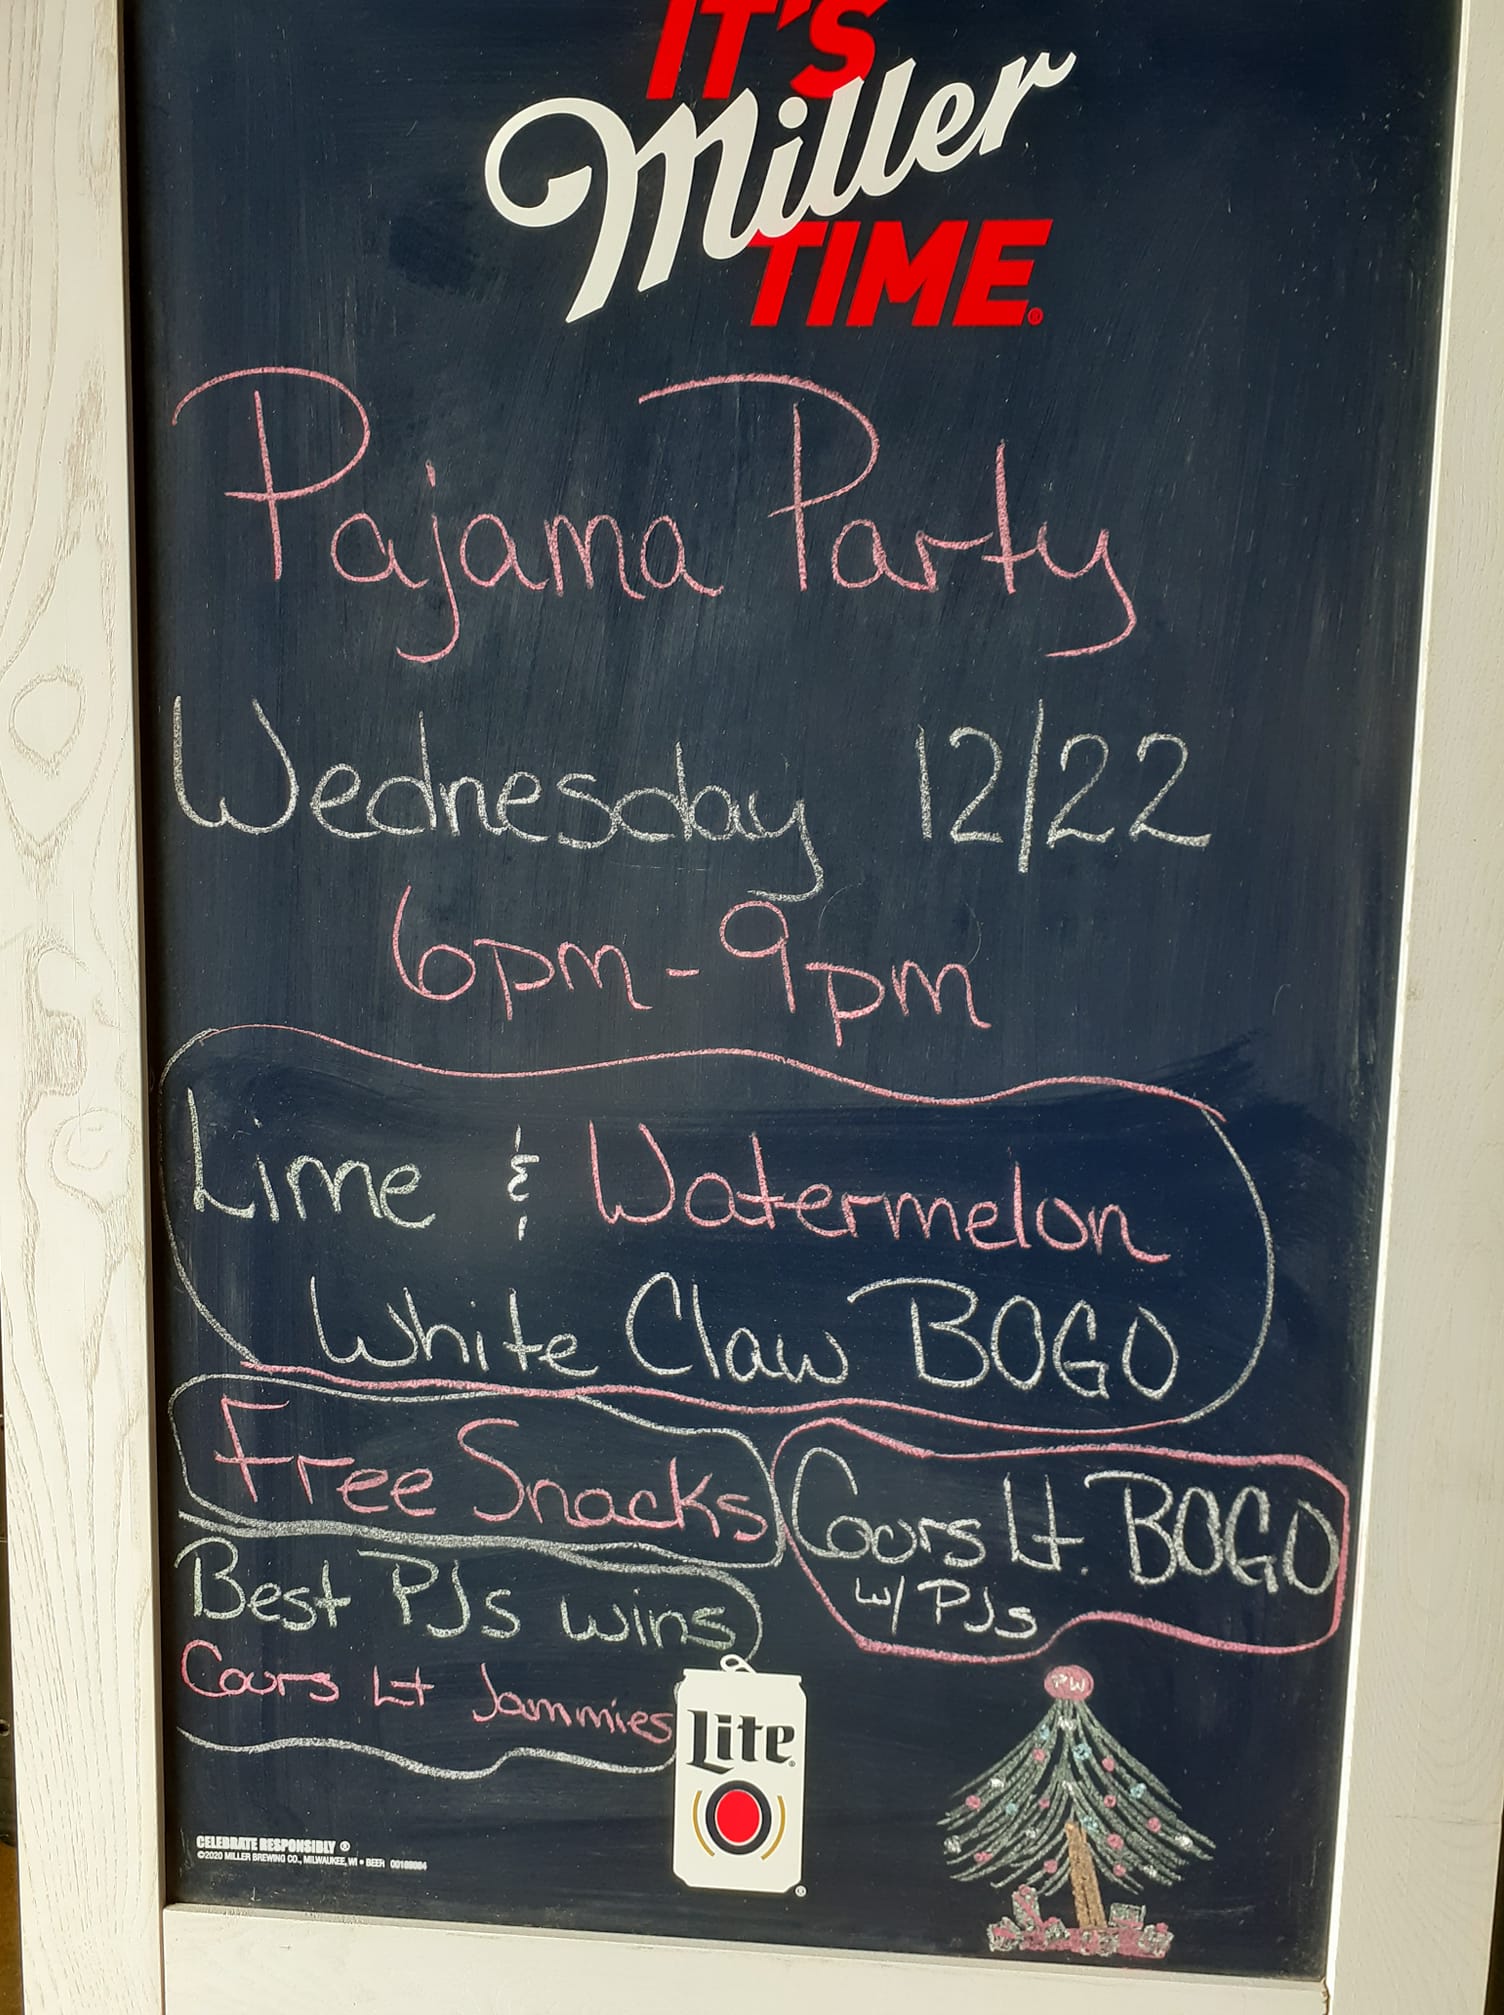 IT'S
Miller
TIME®
Pajama Party
Wednesday 12/22
6pm-9pm
Lime & Watermelon
White Claw BOGO
Free Snacks
Coors Lt. BOGO
w/ PJs
Best PJs wins
Coors Lt Jammies
Lite®
PW
CELEBRATE RESPONSIBLY ®
©2020 MILLER BREWING CO., MILWAUKEE, WI • BEER